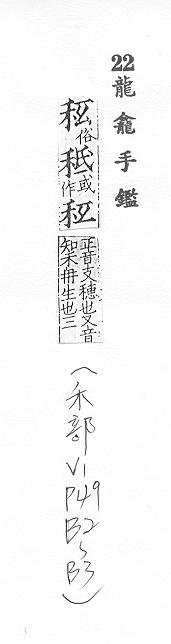 22龍龕手鑑
秪俗秪或作秪
正音支穗也又音
知禾再生也三
（禾部V1P49B2~B3）